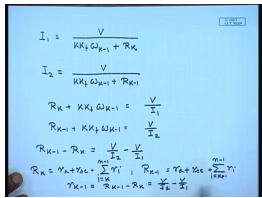 I₁ = V / (KKf ωk-1 + Rk)
I₂ = V / (KKf ωk-1 + Rk-1)
Rk + KKf ωk-1 = V/I₁
Rk-1 + KKf ωk-1 = V/I₂
Rk-1 - Rk = V/I₂ - V/I₁
Rk = ra + rse + Σ(i=k to n-1) ri ; Rk-1 = ra + rse + Σ(i=k-1 to n-1) ri
rk-1 = Rk-1 - Rk = V/I₂ - V/I₁